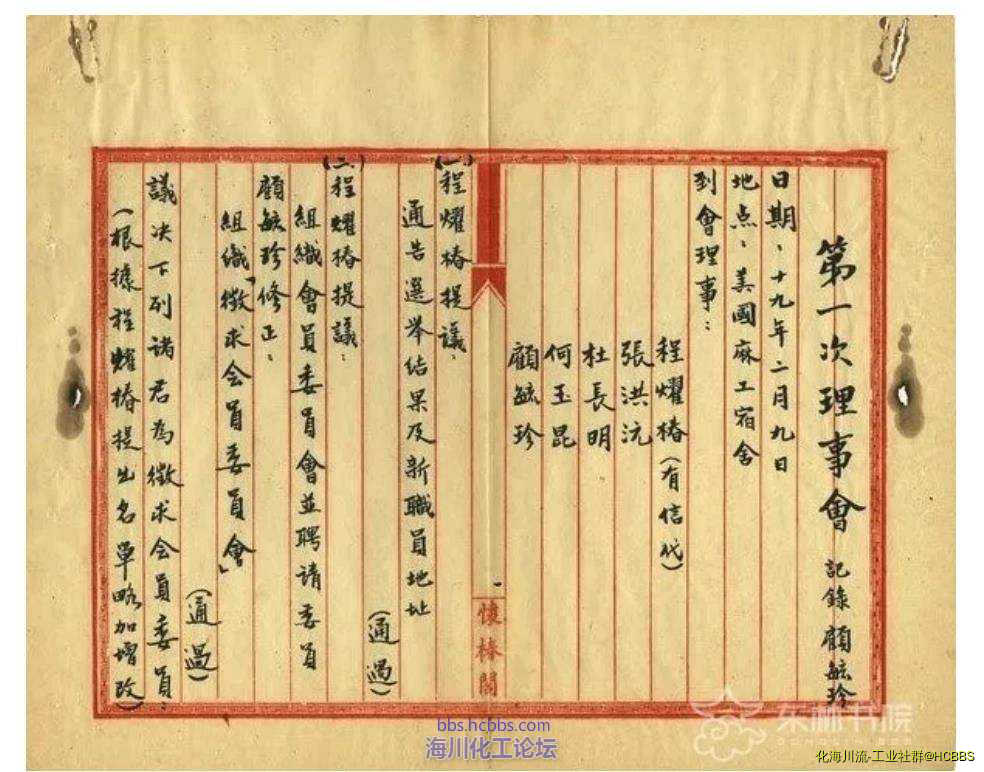 第一次理事會 記錄 顧毓珍
日期：十九年二月九日
地点：美國麻工宿舍
到會理事：
程耀椿（有信代）
張洪沅
杜長明
何玉昆
顧毓珍
懷椿閣
(一)程耀椿提議：
通告選舉結果及新職員地址
（通過）
(二)程耀椿提議：
組織會員委員會並聘請委員
顧毓珍修正：
組織「徵求会員委員會」
（通過）
議决下列诸君為徵求会員委員：
（根據程耀椿提出名單略加增改）
bbs.hcbbs.com
海川化工论坛
东林书院
化海川流-工业社群@HCBBS